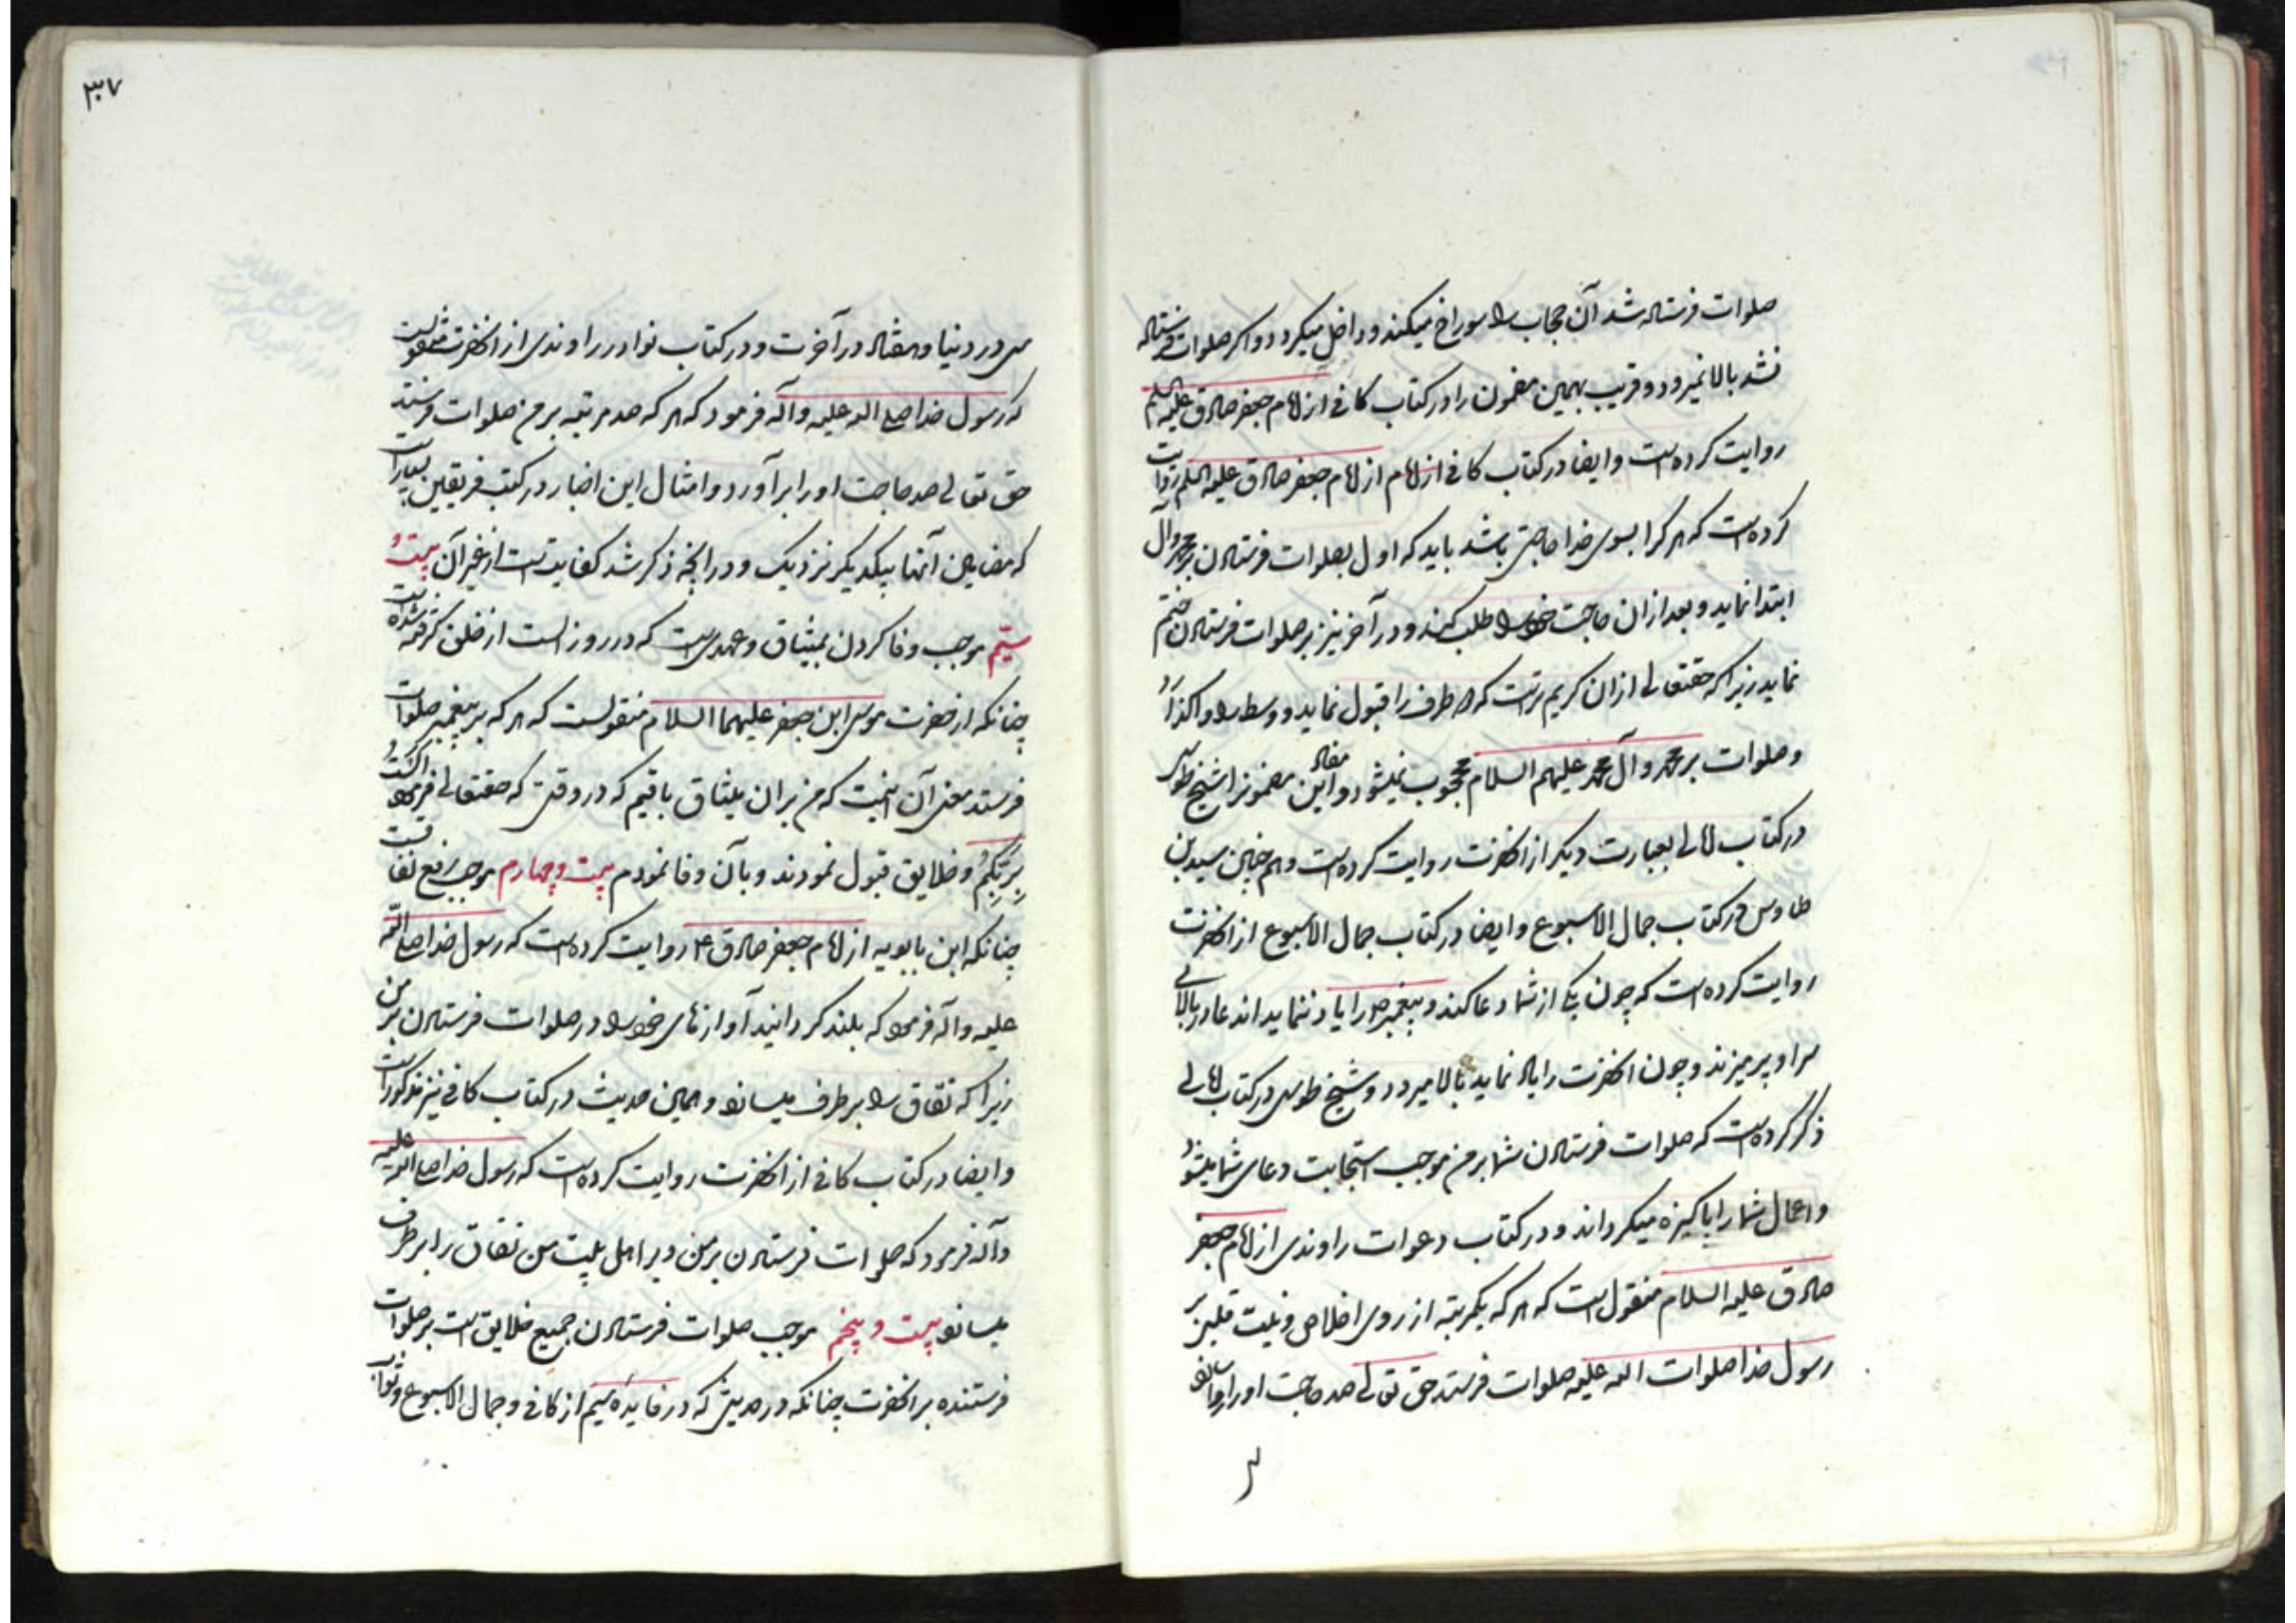 صلوات فرستاده شد آن حجاب را سوراخ میکند و داخل میکردد و اکر صلوات فرستاده
نشد بالا نمیرود و قریب بهمین مضمون را در کتاب کافی از امام جعفر صادق علیه السلم
روایت کرده است و ایضا در کتاب کافی از امام از امام جعفر صادق علیه السلم روایت
کرده است که هر کرا بسوی خدا حاجتی باشد باید که اول بصلوات فرستادن بر محمد و آل
ابتدا نماید و بعد از ان حاجت خود را طلب کند و در آخر نیز بر صلوات فرستادن ختم
نماید زیرا که حقتعالی از ان کریم تر است که دو طرف را قبول نماید و وسط را وا کذارد
و صلوات بر محمد و آل محمد علیهم السلام محجوب نمیشود و مفاد این مضمونرا شیخ طوسی
در کتاب امالی بعبارت دیکر از انحضرت روایت کرده است و هم چنین سید بن
طاوس در کتاب جمال الاسبوع و ایضا در کتاب جمال الاسبوع از انحضرت
روایت کرده است که چون یکی از شما دعا کند و پیغمبر ص را یاد ننماید اندعا در بالای
سر او پر میزند و چون انحضرت را یاد نماید بالا میرود و شیخ طوسی در کتاب امالی
ذکر کرده است که صلوات فرستادن شما بر من موجب استجابت دعای شما میشود
و اعمال شما را پاکیزه میکرداند و در کتاب دعوات راوندی از امام جعفر
صادق علیه السلام منقول است که هر که یکمرتبه از روی اخلاص و نیت قلبی بر
رسول خدا صلوات الله علیه صلوات فرستد حق تعالی صد حاجت او را روا سازد
سی
۳۷
سی در دنیا و هفتاد در آخرت و در کتاب نوادر راوندی از انحضرت منقولست
که رسول خدا صلی الله علیه و آله فرمود که هر که صد مرتبه بر من صلوات فرستد
حق تعالی صد حاجت او را بر آورد و امثال این اخبار در کتب فریقین بسیار است
که مضامین آنها بیکدیکر نزدیک و در انچه ذکر شد کفایت است از غیر آن بیست و
سیّم موجب وفا کردن بمیثاق و عهدی است که در روز الست از خلق کرفته شده است
چنانکه از حضرت موسی ابن جعفر علیهما السلام منقولست که هر که بر پیغمبر صلوات
فرستد معنی آن اینست که من بر ان میثاق باقیم که در وقتی که حقتعالی فرمود الست
بربّکم و خلایق قبول نمودند و بآن وفا نمودم بیست و چهارم موجب رفع نفاقست
چنانکه ابن بابویه از امام جعفر صادق ع روایت کرده است که رسول خدا صلی الله
علیه و آله فرمود که بلند کردانید آوازهای خود را در صلوات فرستادن بر من
زیرا که نفاق را بر طرف میسازد و همین حدیث در کتاب کافی نیز مذکور است
و ایضا در کتاب کافی از انحضرت روایت کرده است که رسول خدا صلی الله علیه
و آله فرمود که صلوات فرستادن بر من و بر اهل بیت من نفاق را بر طرف
میسازد بیست و پنجم موجب صلوات فرستادن جمیع خلایق است بر صلوات
فرستنده بر انحضرت چنانکه در حدیثی که در فایده سیم از کافی و جمال الاسبوع و ثواب